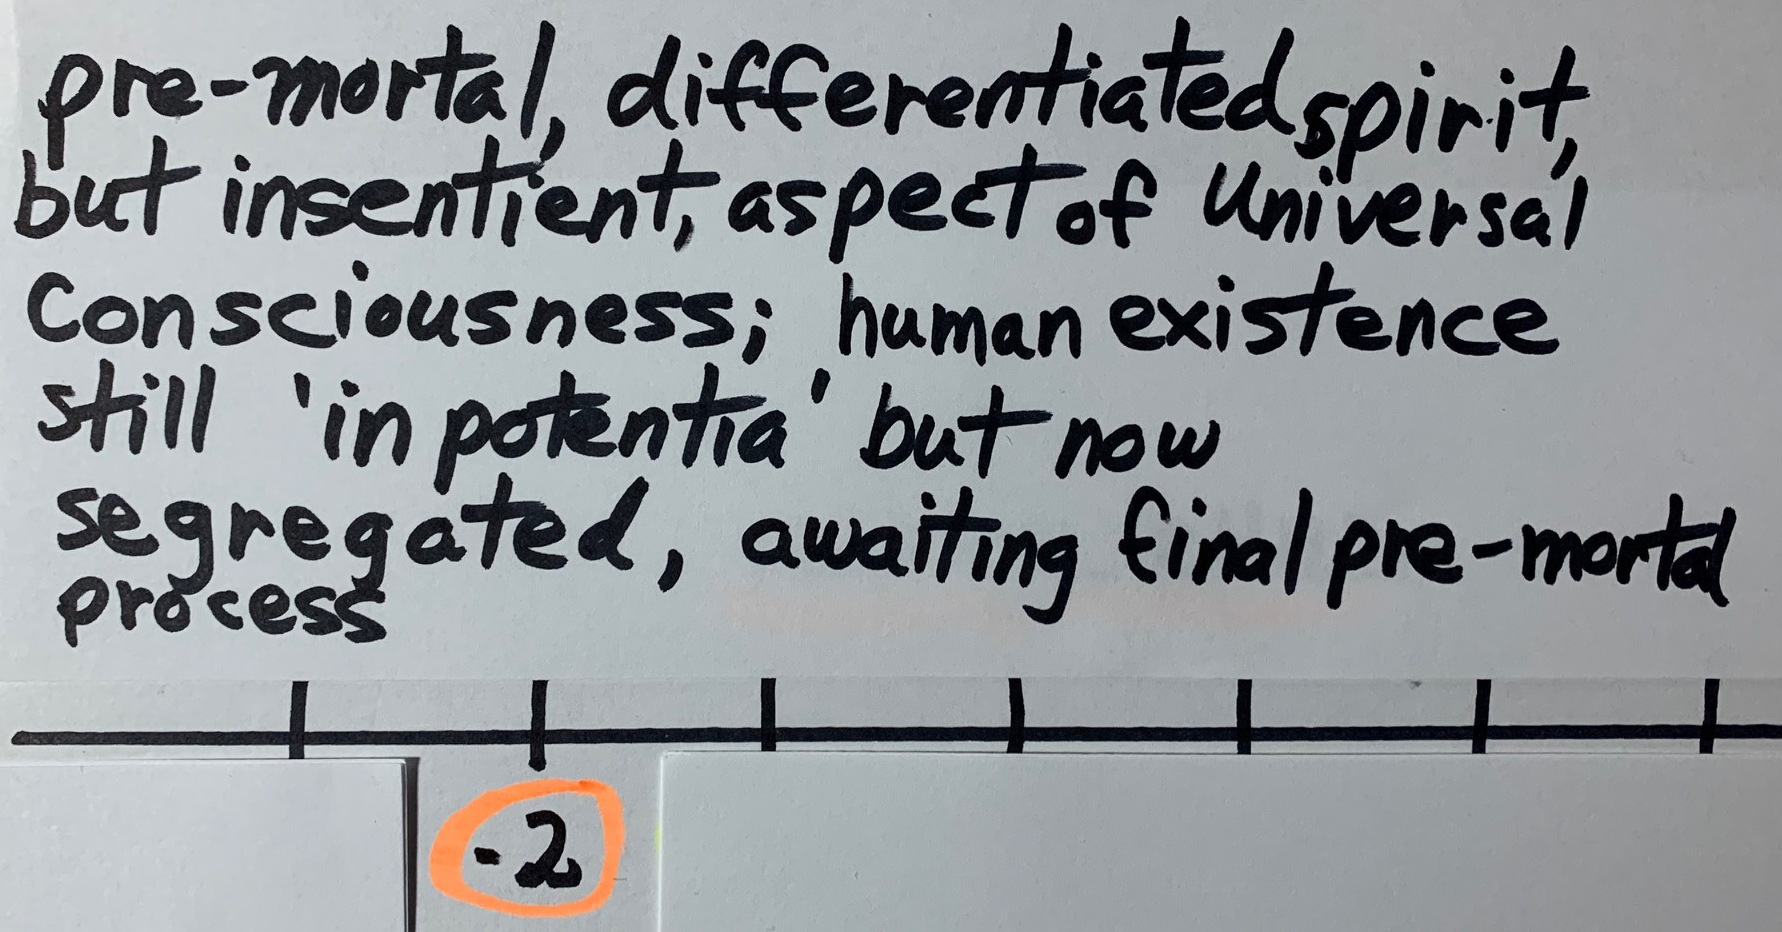 pre-mortal, differentiated spirit,
but insentient, aspect of Universal
Consciousness; human existence
still 'in potentia' but now
segregated, awaiting final pre-mortal
process
-2